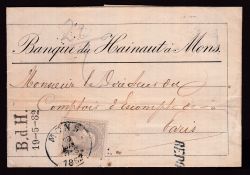 Banque du Hainaut à Mons.
Monsieur le Directeur du
Comptoir d'Escompte de
Paris
B.d H
19-5-82
MONS